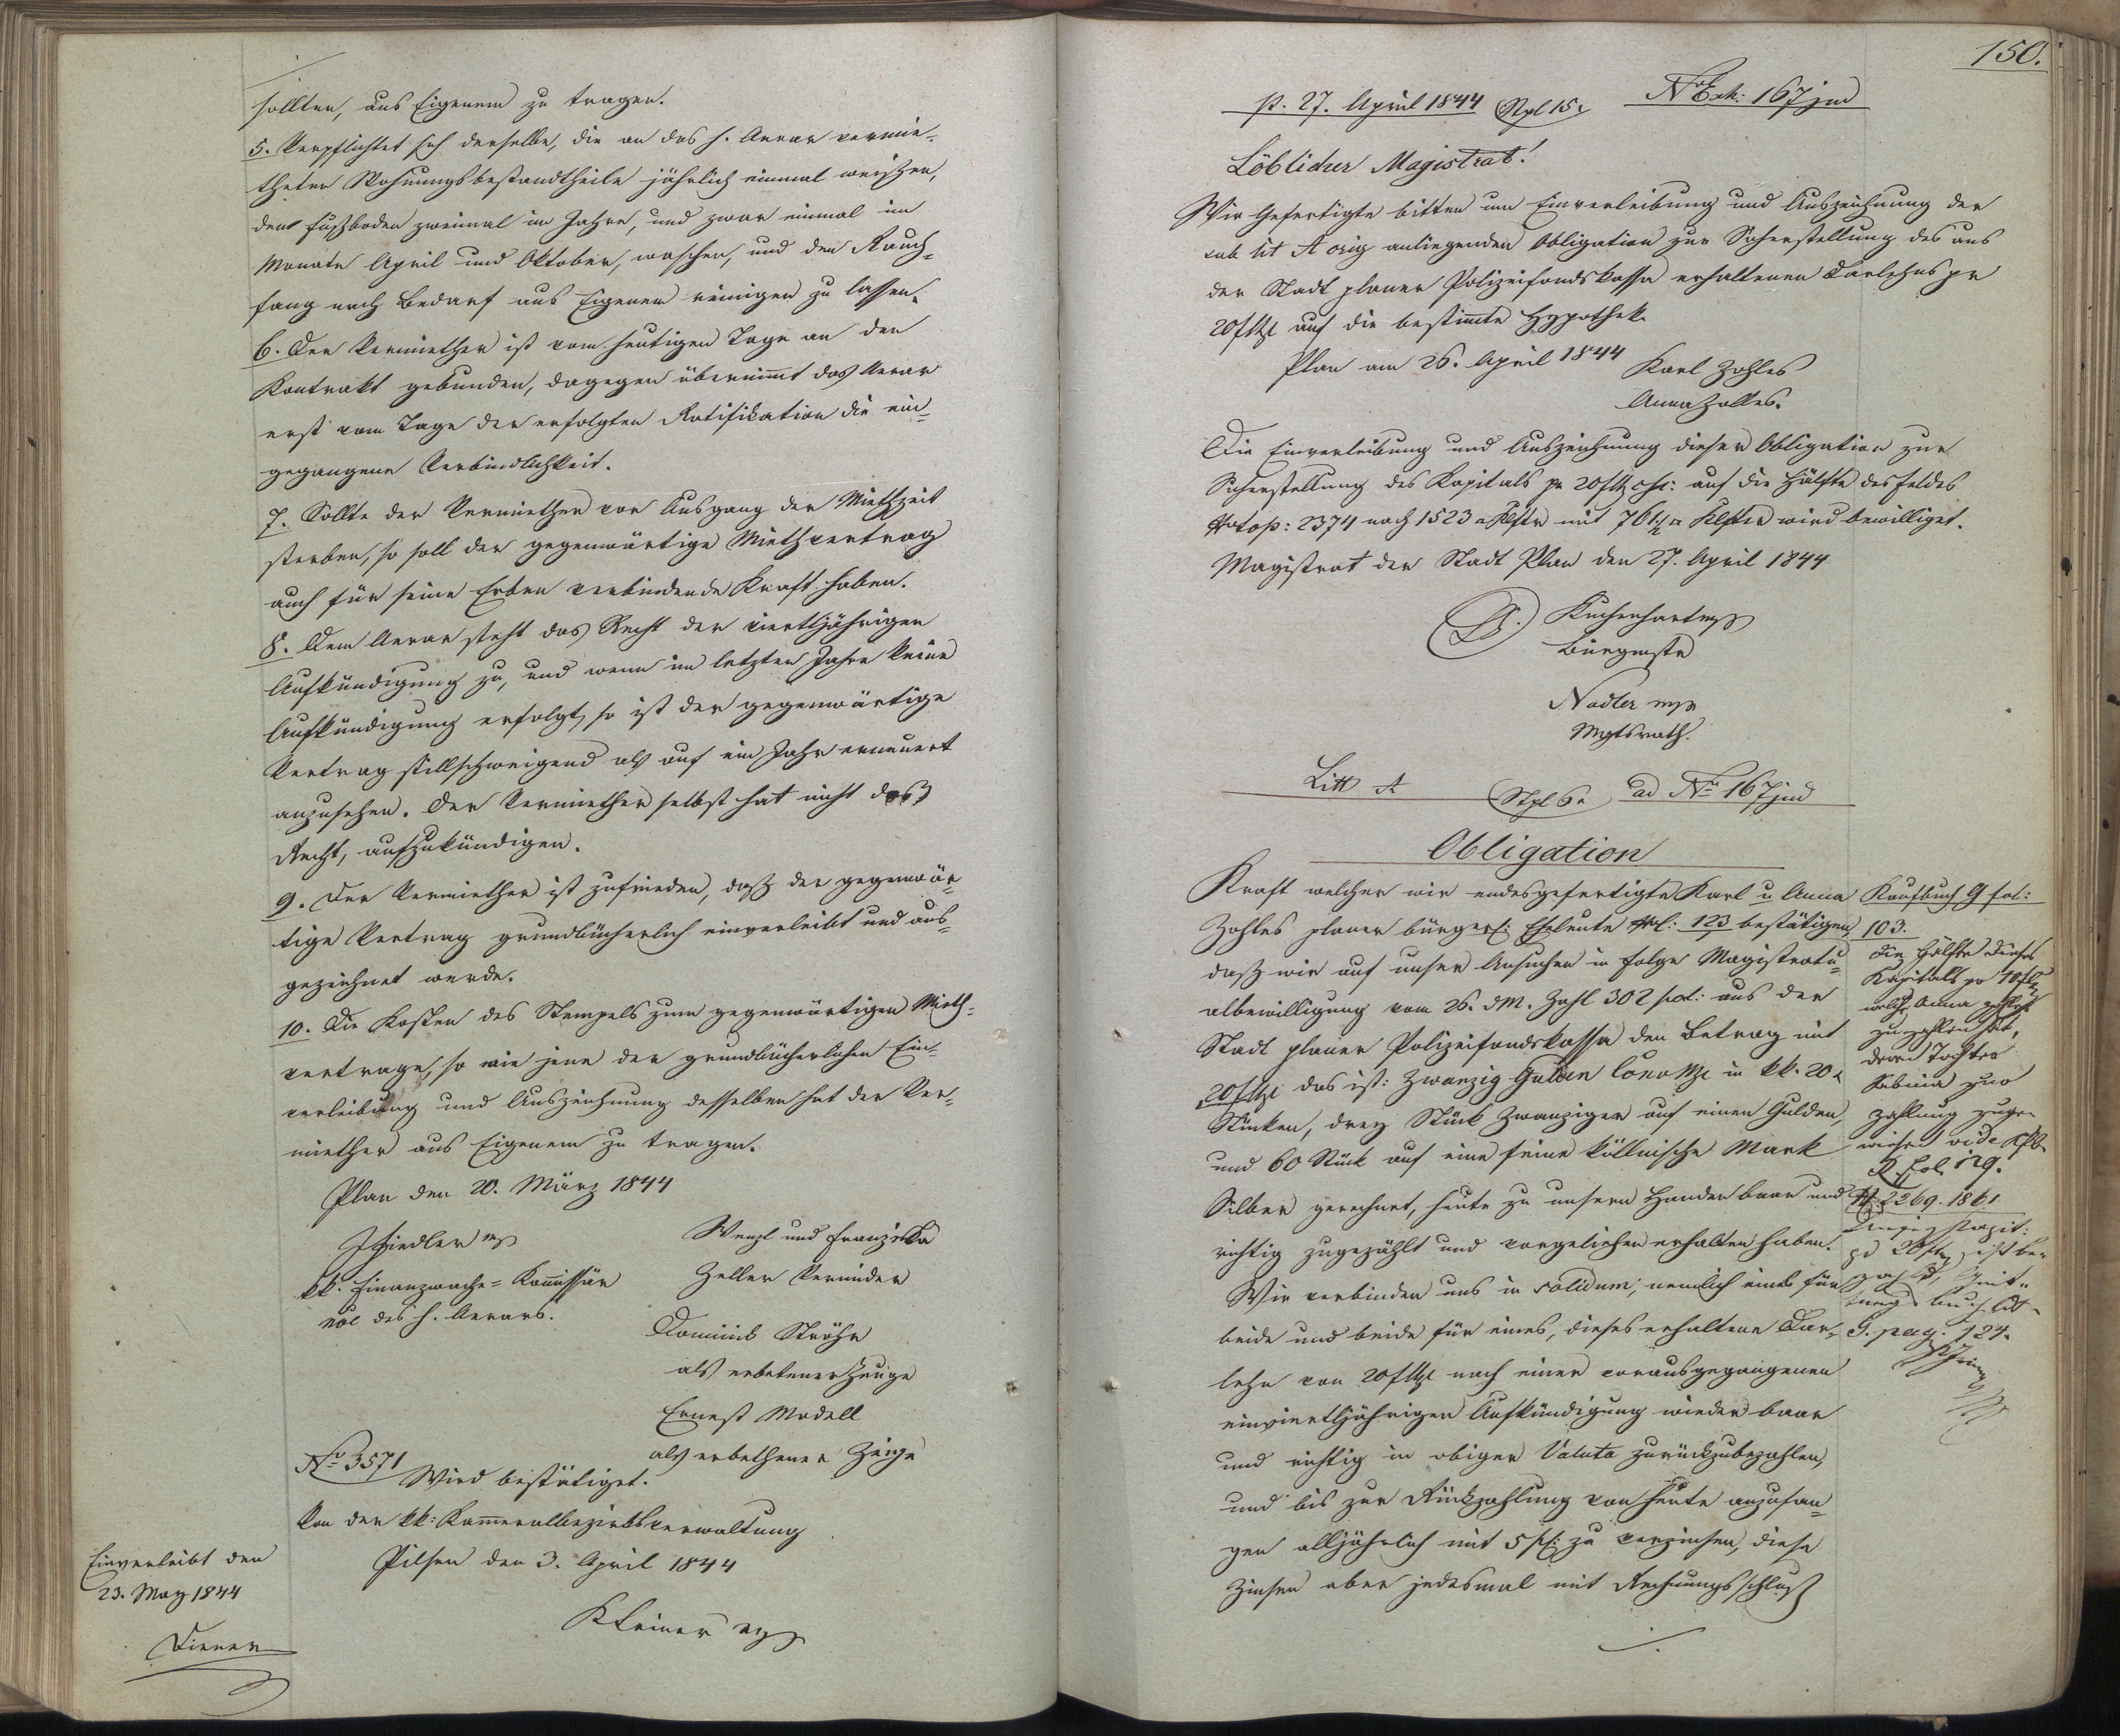 sollten, aus Eigenem zu tragen.
5. Verpflichtet sich derselbe, die an das h. Aerar vermie-
theten Wohnungsbestandtheile jährlich einmal weißen,
den Fußboden zweimal im Jahre, und zwar einmal im
Monate April und Oktober, waschen, und den Rauch-
fang nach Bedarf aus Eigenem reinigen zu lassen.
6. Der Vermiether ist vom heutigen Tage an den
Kontrakt gebunden, dagegen übernimmt das Aerar
erst vom Tage der erfolgten Ratifikation die ein-
gegangene Verbindlichkeit.
7. Sollte der Vermiether vor Ausgang der Miethzeit
sterben, so soll der gegenwärtige Miethvertrag
auch für seine Erben verbindende Kraft haben.
8. Dem Aerar steht das Recht der viertljährigen
Aufkündigung zu, und wenn im letzten Jahre keine
Aufkündigung erfolgt, so ist der gegenwärtige
Vertrag stillschweigend als auf ein Jahr erneuert
anzusehen. Der Vermiether selbst hat nicht das
Recht, aufzukündigen.
9. Der Vermiether ist zufrieden, daß der gegenwär-
tige Vertrag grundbücherlich einverleibt und aus-
gezeichnet werde.
10. Die Kosten des Stempels zum gegenwärtigen Mieth-
vertrage, so wie jene der grundbücherlichen Ein-
verleibung und Auszeichnung desselben hat der Ver-
miether aus Eigenem zu tragen.
Plan den 20. März 1844
Fiedler mp
kk. Finanzwache-Kommissär
noe des h. Aerars.
Wenzl und Franziska
Zeller Vermiether
Dominik Ströhr
als erbetener Zeuge
Ernest Modell
als erbethener Zeuge
No 3571
Wird bestätiget.
Von der kk: Kameralbezirksverwaltung
Pilsen den 3. April 1844
Kleiner mp
Einverleibt den
23. May 1844
Diener
150.
p. 27. April 1844 Stpl 15x No Exh: 167 jud
Löblicher Magistrat!
Wir Gefertigte bitten um Einverleibung und Auszeichnung der
sub lit A orig anliegenden Obligation zur Sicherstellung des aus
der Stadt planer Polizeifondskassa erhaltenen Darlehns pr
20 f Mze auf die bestimmte Hypothek.
Plan am 26. April 1844
Karl Zohles
Anna Zolles.
Die Einverleibung und Auszeichnung dieser Obligation zur
Sicherstellung des Kapitals pr 20 f Mz c.s.c: auf die Hälfte des Feldes
Ntop: 2374 nach 1523 □ Klftr mit 761½ □ Klftr wird bewilliget.
Magistrat der Stadt Plan den 27. April 1844
Kuchenhart mp
Bürgmstr
Nadler mp
Mgtsrath.
Litt A Stpl 6x ad No 167 jud
Obligation
Kraft welcher wir endesgefertigte Karl u Anna
Zohles planer bürgerl: Eheleute Nr: 123 bestätigen,
daß wir auf unser Ansuchen in Folge Magistratu-
albewilligung vom 26. d M. Zahl 302 pol: aus der
Stadt planer Polizeifondskassa den Betrag mit
20 f Mze das ist: Zwanzig Gulden Conv Mze in kk. 20 x
Stücken, drey Stück Zwanziger auf einen Gulden,
und 60 Stück auf eine feine köllnische Mark
Silber gerechnet, heute zu unsern Handen baar und
richtig zugezählt und vorgeliehen erhalten haben.
Wir verbinden uns in solidum, nemlich eines für
beide und beide für eines, dieses erhaltene Dar-
lehn von 20 f Mze nach einer vorausgegangenen
einviertljährigen Aufkündigung wieder baar
und richtig in obiger Valuta zurückzubezahlen,
und bis zur Rückzahlung von heute anzufan-
gen alljährlich mit 5 pC: zu verzinsen, diese
Zinsen aber jedesmal mit Rechnungsschluß
Kaufbuch G fol:
103.
Die Hälfte dieses
Kapitals pr 10 f
welche Anna Zohles
zu zahlen hat,
deren Tochter
Sabina zur
Zahlung zuge-
wiesen vide Kfb
R fol. 129.
2269. 1861
Kapit:
pr 20 f ist be-
zahlt, Quit-
tungsbuch litt
G. pag. 124.